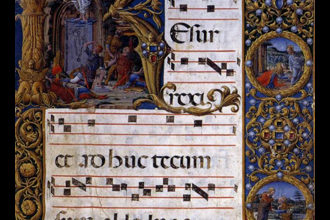 REsur
rexi
et ad huc tecum